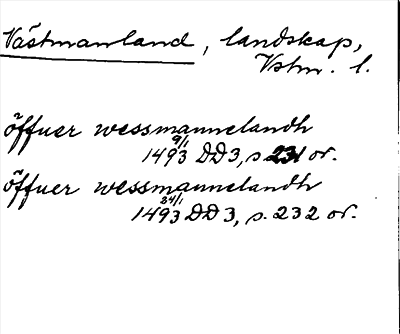 Västmanland, landskap,
Vstm. l.
öffuer wessmannelandh
9/1 1493 DD3, s. 231 or.
öffuer wessmannelandh
24/1 1493 DD3, s. 232 or.